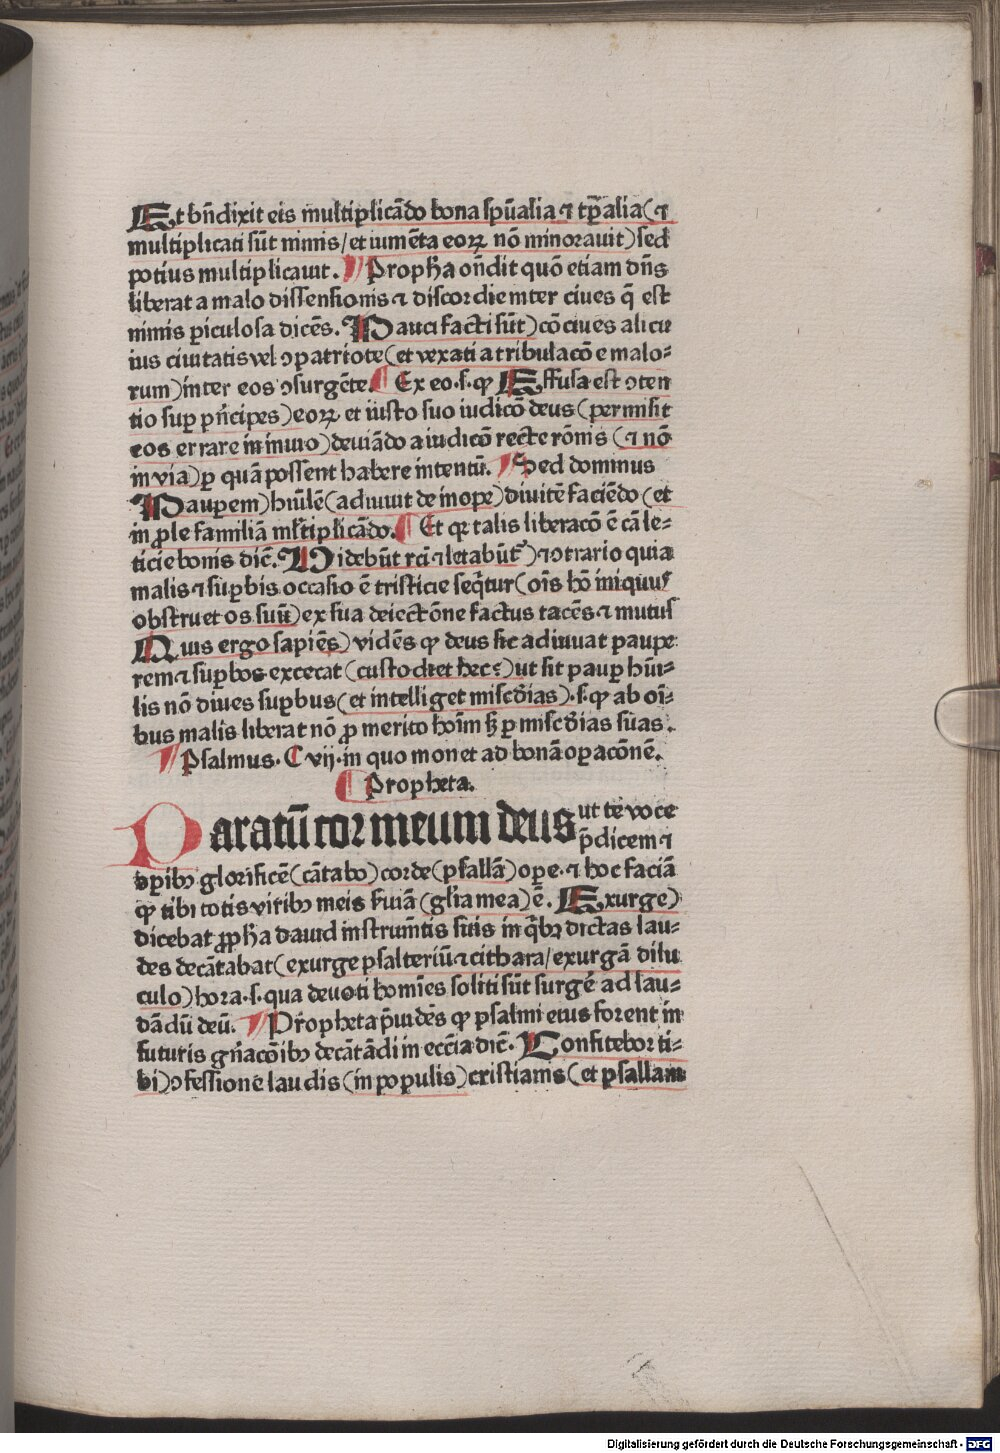 Et bn̄dixit eis multiplicādo bona spūalia ⁊ tꝑalia (⁊
multiplicati sūt nimis/ et iumēta eoꝝ nō minorauit) sed
potius multiplicauit. Propħa on̄dit quō etiam dn̄s
liberat a malo dissensionis ⁊ discordie inter ciues q̄ est
nimis piculosa dicēs. Pauci facti sūt) cōciues alicu
ius ciuitatis vel ↄpatriote (et vexati a tribulacōe malo⸗
rum) inter eos ↄsurgēte. Ex eo.s.ꝙ Effusa est ↄten
tio suꝑ pn̄cipes) eoꝝ et iusto suo iudicō deus (permisit
eos errare in inuio) deuiādo a iudicō recte rōnis (⁊ nō
in via) ꝑ quā possent habere intentū. Sed dominus
Pauperem) hūilē (adiuuit de inope) diuitē faciēdo (et
in ꝓle familiā ml̄tiplicādo. Et qꝛ talis liberacō ē cā le⸗
ticie bonis dic̄. Uidebūt rc̄i ⁊ letabūt᷑) ⁊ ↄtrario quia
malis ⁊ suꝑbis occasio ē tristicie seq̄tur (oīs hō iniquus
obstruet os suū) ex sua deiectōne factus tacēs ⁊ mutus
Quis ergo sapiēs) vidēs ꝙ deus sic adiuuat paupe
rem ⁊ suꝑbos excecat (custodiet hec?) ut sit pauꝑ hūi⸗
lis nō diues suꝑbus (et intelliget mīscdias).s.ꝙ ab oī⸗
bus malis liberat nō ꝓ merito hoīm sꝫ ꝑ mīscdias suas.
Psalmus. Cvij. in quo monet ad bonā oꝑacōnē.
Propheta.
Paratū cor meum deus ut te voce
p̄dicem ⁊
oꝑibꝫ glorificē (cātabo) corde (psallā) ope. ⁊ hoc faciā
ꝙ tibi totis viribꝫ meis ſuiā (gl̄ia mea) ē. Exurge)
dicebat ꝓpħa dauid instrumētis suis in q̄bꝫ dictas lau⸗
des decātabat (exurge psalteriū ⁊ cithara/ exurgā dilu
culo) hora.s. qua deuoti homīes soliti sūt surgē ad lau⸗
dādū deū. Propheta p̄uidēs ꝙ psalmi eius forent in
futuris gn̄acōibꝫ decātādi in ecc̄ia dic̄. Confitebor ti⸗
bi) ↄfessione laudis (in populis) cristianis (et psallam
Digitalisierung gefördert durch die Deutsche Forschungsgemeinschaft - DFG